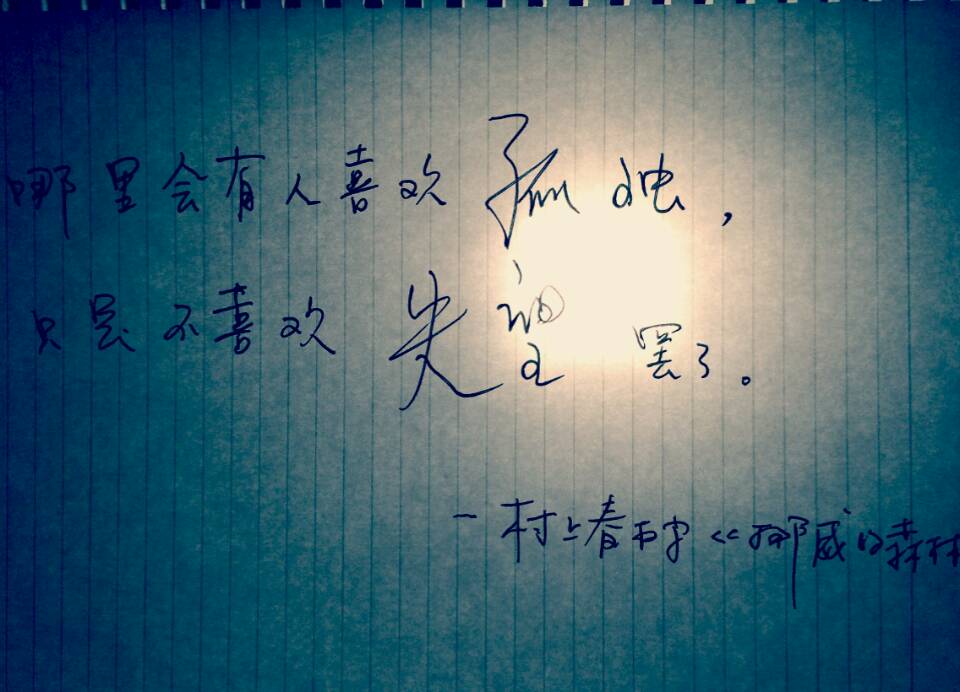 哪里会有人喜欢孤独,
只是不喜欢失望罢了。
一村上春树《挪威的森林